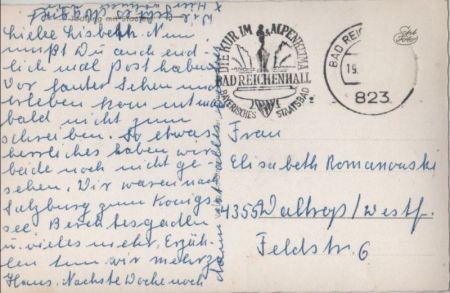 Liebe Lisbeth. Nun
mußt Du auch end-
lich mal Post haben
Vor lauter Sehen und
erleben kom ich
bald nicht zum
schreiben. So etwas
herrliches haben wir
beide noch nicht ge-
sehen. Wir waren nach
Salzburg zum Königs-
see Berchtesgaden
u. vieles mehr. Erzäh-
len tun wir mehr zu
Haus. Nächste Woche noch
dann ist alles
DIE KUR IM ALPENKLIMA
BAD REICHENHALL
BAYERISCHES STAATSBAD
BAD REIC
19.
823
Frau
Elisabeth Romanowski
4355 Waltrop/Westf.
Feldstr. 6